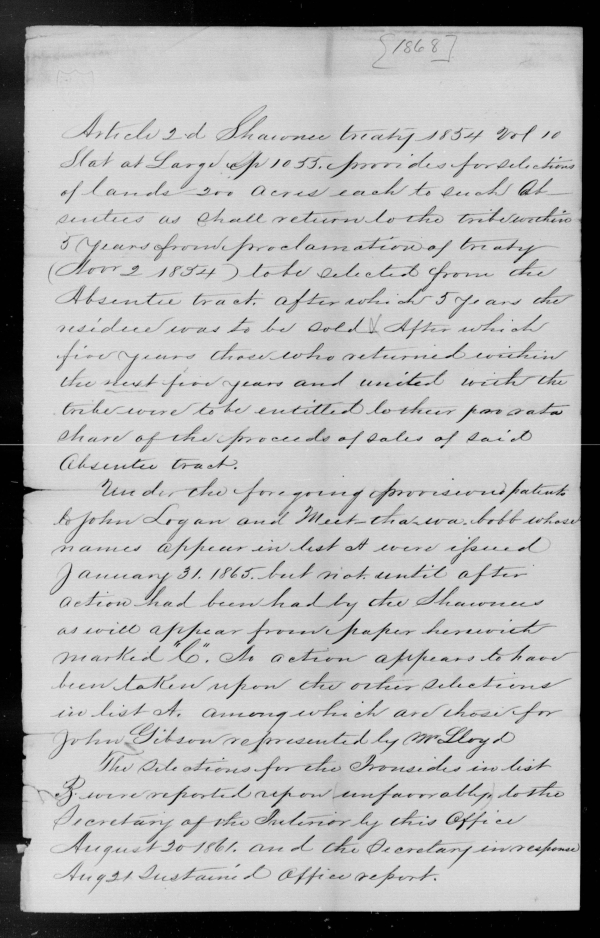 [1868]
Article 2d Shawnee treaty 1854 Vol 10
Stat at Large p 1055. provides for selections
of lands 200 acres each to such Ab
sentees as shall return to the tribe within
5 years from proclamation of treaty
(Novr 2 1854) to be selected from the
Absentee tract. after which 5 years the
residue was to be sold After which
five years those who returned within
the next five years and united with the
tribe were to be entitled to their pro rata
share of the proceeds of sales of said
Absentee tract.
Under the foregoing provisions patents
to John Logan and Meet-tha-wa-bobb whose
names appear in list A were issued
January 31. 1865. but not until after
action had been had by the Shawnees
as will appear from paper herewith
marked "C". No action appears to have
been taken upon the other selections
in list A. among which are those for
John Gibson represented by Mr Lloyd
The selections for the Ironsides in list
B were reported upon unfavorably to the
Secretary of the Interior by this Office
August 20 1861. and the Secretary in response
Aug 21 sustained Office report.